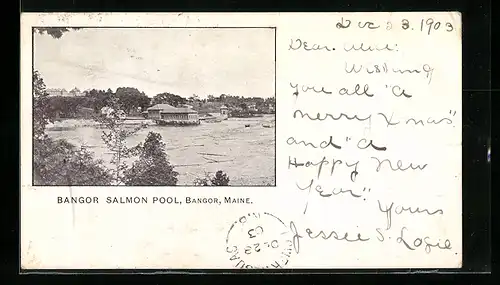 Dec 23. 1903
Dear
Wishing
you all "a
merry Xmas"
and "a
Happy New
Year".
Yours
Jessie S. Logie
BANGOR SALMON POOL, BANGOR, MAINE.
DE 23
03
N.B.